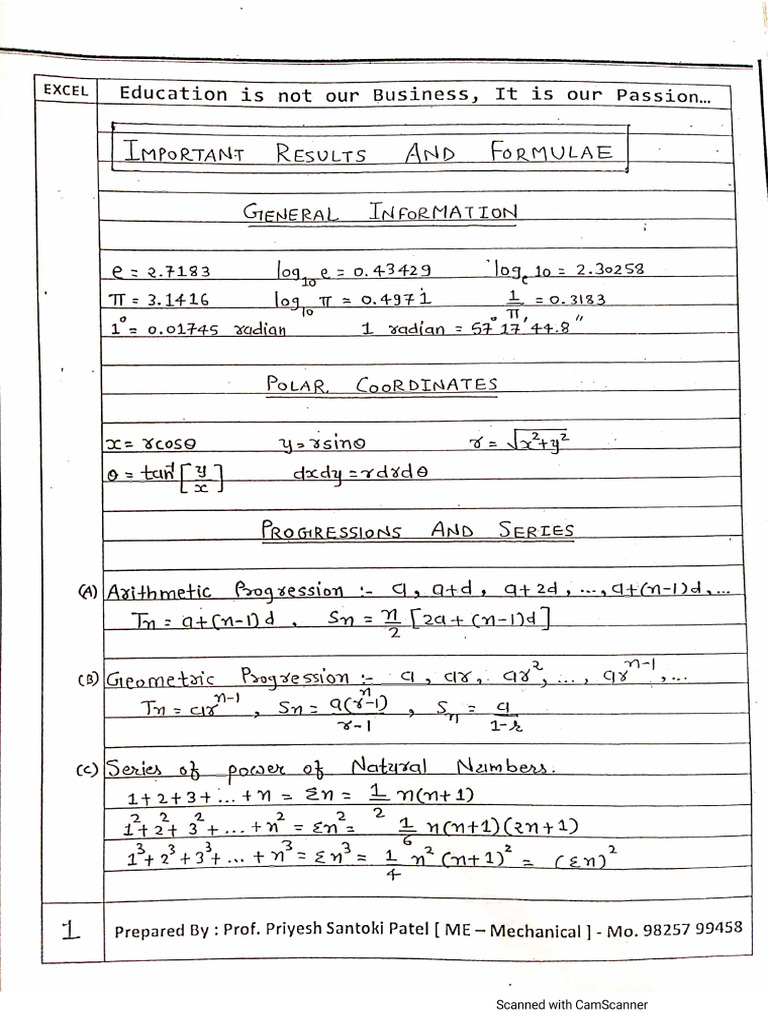 EXCEL Education is not our Business, It is our Passion...
IMPORTANT RESULTS AND FORMULAE
GENERAL INFORMATION
e = 2.7183 log₁₀ e = 0.43429 logₑ 10 = 2.30258
π = 3.1416 log₁₀ π = 0.4971 1/π = 0.3183
1° = 0.01745 radian 1 radian = 57° 17' 44.8"
POLAR COORDINATES
x = r cosθ y = r sinθ r = √(x²+y²)
θ = tan⁻¹ [y/x] dxdy = r dr dθ
PROGRESSIONS AND SERIES
(A) Arithmetic Progression :- a, a+d, a+2d, ..., a+(n-1)d, ...
Tn = a+(n-1)d , Sn = n/2 [2a + (n-1)d]
(B) Geometric Progression :- a, ar, ar², ..., ar^(n-1), ...
Tn = ar^(n-1) , Sn = a(r^n-1)/(r-1) , Sη = a/(1-r)
(C) Series of power of Natural Numbers.
1+2+3+...+n = Σn = 1/2 n(n+1)
1²+2²+3²+...+n² = Σn² = 1/6 n(n+1)(2n+1)
1³+2³+3³+...+n³ = Σn³ = 1/4 n²(n+1)² = (Σn)²
1 Prepared By : Prof. Priyesh Santoki Patel [ ME – Mechanical ] - Mo. 98257 99458
Scanned with CamScanner